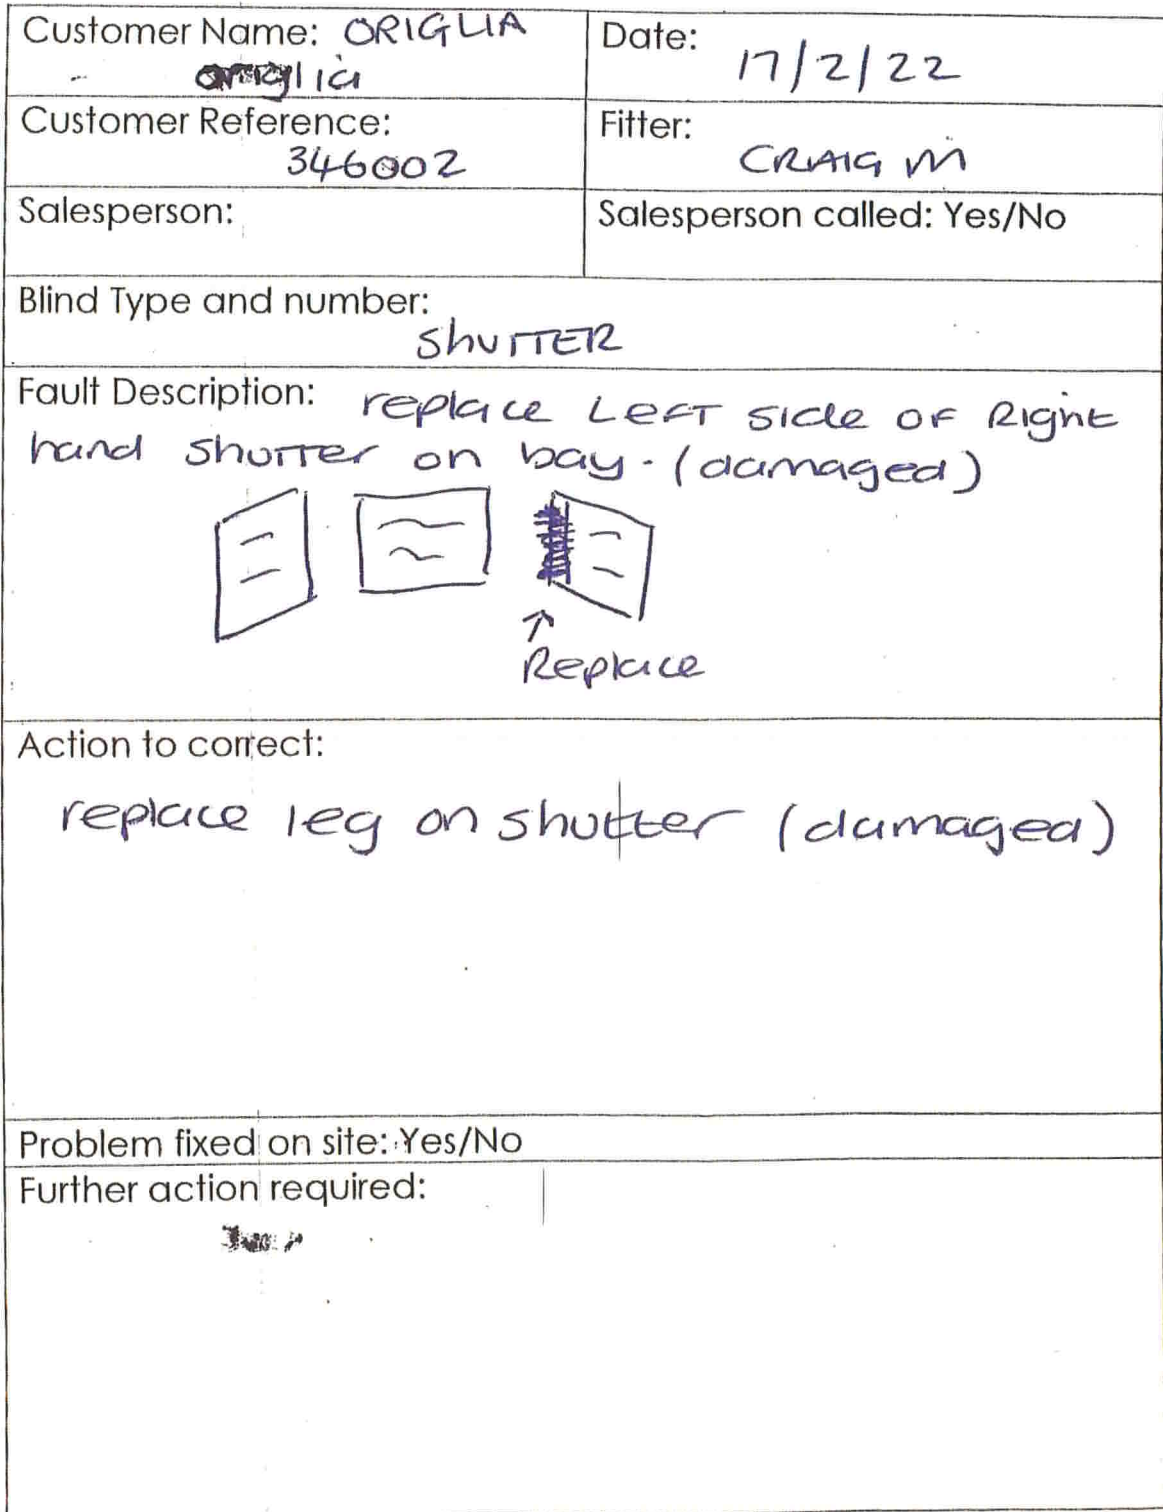 Customer Name: ORIGLIA
origlia
Date: 17/2/22
Customer Reference:
346002
Fitter:
CRAIG M
Salesperson:
Salesperson called: Yes/No
Blind Type and number:
ShUTTER
Fault Description: replace LEFT side OF Right
hand shutter on bay. (damaged)
Replace
Action to correct:
replace leg on shutter (damaged)
Problem fixed on site: Yes/No
Further action required: